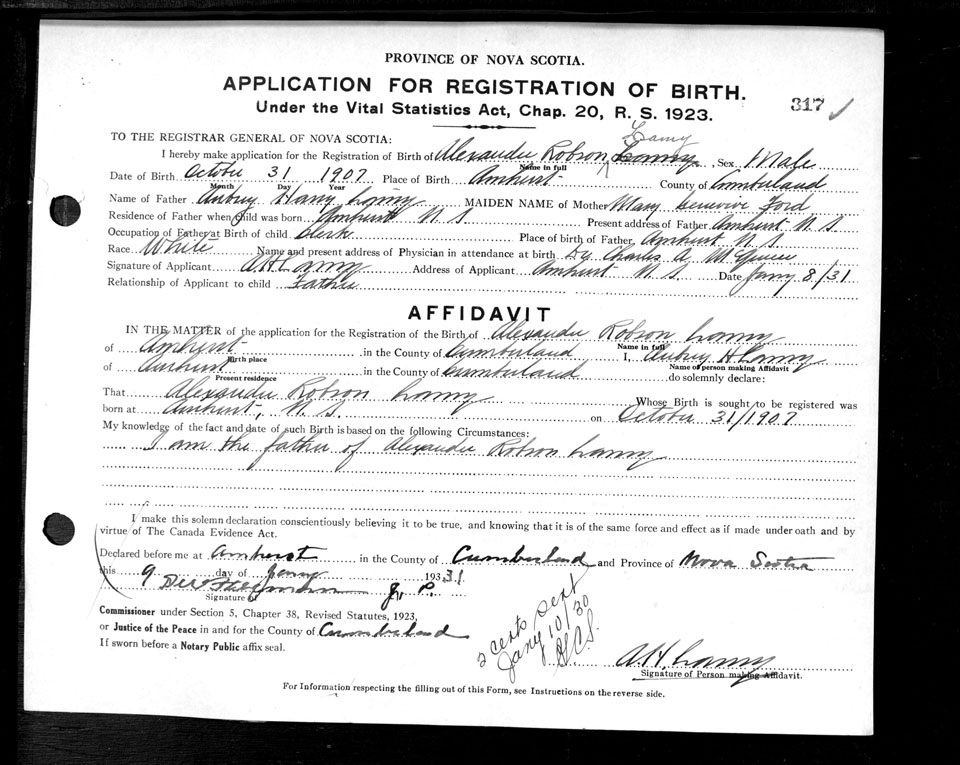 PROVINCE OF NOVA SCOTIA.
APPLICATION FOR REGISTRATION OF BIRTH.
317
Under the Vital Statistics Act, Chap. 20, R. S. 1923.
TO THE REGISTRAR GENERAL OF NOVA SCOTIA:
I hereby make application for the Registration of Birth of Alexander Robson Sex Male
Name in full
Date of Birth October 31 1907 Place of Birth Amherst County of Cumberland
Month Day Year
Name of Father Aubrey Harry MAIDEN NAME of Mother Mary Ford
Residence of Father when Child was born Amherst N S Present address of Father Amherst N S
Occupation of Father at Birth of child Clerk Place of birth of Father Amherst N. S.
Race White Name and present address of Physician in attendance at birth Dr Charles A
Signature of Applicant A H Address of Applicant Amherst N. S. Date Jany 8/31
Relationship of Applicant to child Father
AFFIDAVIT
IN THE MATTER of the application for the Registration of the Birth of Alexander Robson
Name in full
of Amherst in the County of Cumberland I, Aubrey H
Birth place Name of person making Affidavit
of Amherst in the County of Cumberland do solemnly declare:
Present residence
That Alexander Robson Whose Birth is sought to be registered was
born at Amherst, N. S. on October 31/1907
My knowledge of the fact and date of such Birth is based on the following Circumstances:
I am the father of Alexander Robson
I make this solemn declaration conscientiously believing it to be true, and knowing that it is of the same force and effect as if made under oath and by
virtue of The Canada Evidence Act.
Declared before me at Amherst in the County of Cumberland and Province of Nova Scotia
this 9 day of Jany 1931.
J. P.
Signature of
Commissioner under Section 5, Chapter 38, Revised Statutes, 1923,
or Justice of the Peace in and for the County of Cumberland
If sworn before a Notary Public affix seal.
2 certs sent
Jany 10/30
A. H.
Signature of Person making Affidavit.
For Information respecting the filling out of this Form, see Instructions on the reverse side.